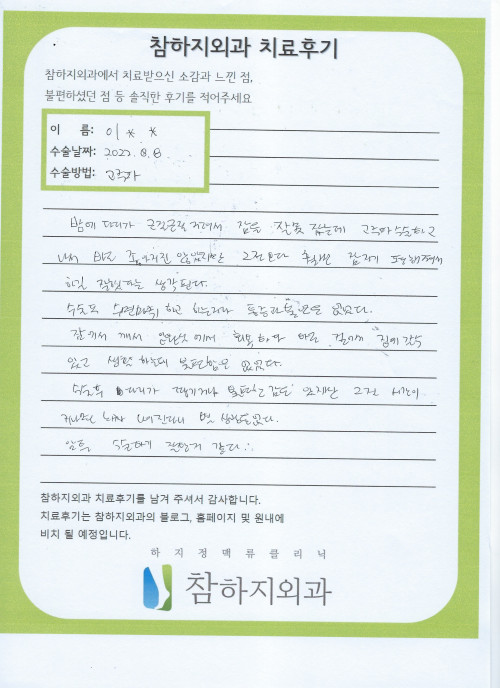 참하지외과 치료후기
참하지외과에서 치료받으신 소감과 느낀 점,
불편하셨던 점 등 솔직한 후기를 적어주세요
이 름: 이 * *
수술날짜: 2022.8.8
수술방법: 고주파
밤에 다리가 근질근질 거려서 잠을 잘못 잤는데 고주파 수술하고
나서 바로 좋아지진 않았지만 그전보다 훨씬 잠자기 편해져서
하길 잘했다는 생각된다.
수술도 수면마취 하고 하는거라 통증과 불편은 없었다.
잠에서 깨서 회복하고 바로 걸어서 집에 갈수
있고 생활 하는데 불편함은 없었다.
수술후 다리가 땡기거나 불편한 감도 있지만 그건 시간이
지나면 나아진다니 별 상관없다.
암튼 수술하길 잘한거 같다.
참하지외과 치료후기를 남겨 주셔서 감사합니다.
치료후기는 참하지외과의 블로그, 홈페이지 및 원내에
비치 될 예정입니다.
하지정맥류클리닉
참하지외과